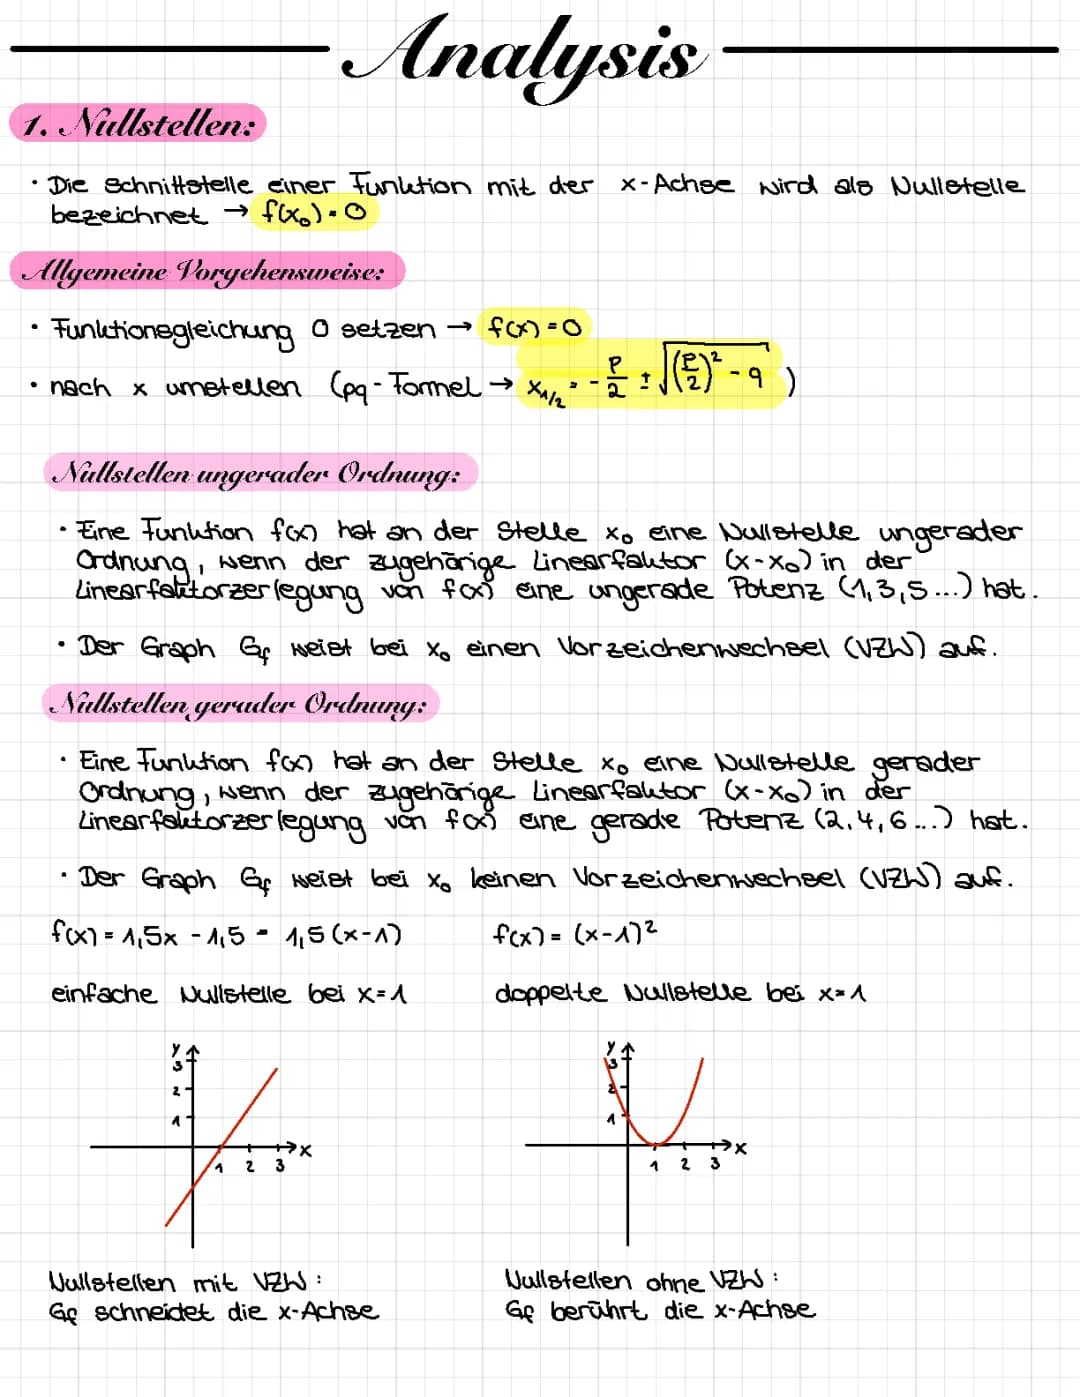 Analysis
1. Nullstellen:
· Die Schnittstelle einer Funktion mit der x-Achse wird als Nullstelle
bezeichnet → f(x₀) = 0
Allgemeine Vorgehensweise:
· Funktionsgleichung 0 setzen → f(x) = 0
· nach x umstellen (pq-Formel → x₁/₂ = - p/2 ± √((p/2)² - q) )
Nullstellen ungerader Ordnung:
· Eine Funktion f(x) hat an der Stelle x₀ eine Nullstelle ungerader
Ordnung, wenn der zugehörige Linearfaktor (x-x₀) in der
Linearfaktorzerlegung von f(x) eine ungerade Potenz (1,3,5...) hat.
· Der Graph Gf weist bei x₀ einen Vorzeichenwechsel (VZW) auf.
Nullstellen gerader Ordnung:
· Eine Funktion f(x) hat an der Stelle x₀ eine Nullstelle gerader
Ordnung, wenn der zugehörige Linearfaktor (x-x₀) in der
Linearfaktorzerlegung von f(x) eine gerade Potenz (2,4,6...) hat.
· Der Graph Gf weist bei x₀ keinen Vorzeichenwechsel (VZW) auf.
f(x) = 1,5x - 1,5 = 1,5 (x-1)
f(x) = (x-1)²
einfache Nullstelle bei x=1
doppelte Nullstelle bei x=1
y
3
2
1
x
1 2 3
y
3
2
1
x
1 2 3
Nullstellen mit VZW:
Gf schneidet die x-Achse
Nullstellen ohne VZW:
Gf berührt die x-Achse